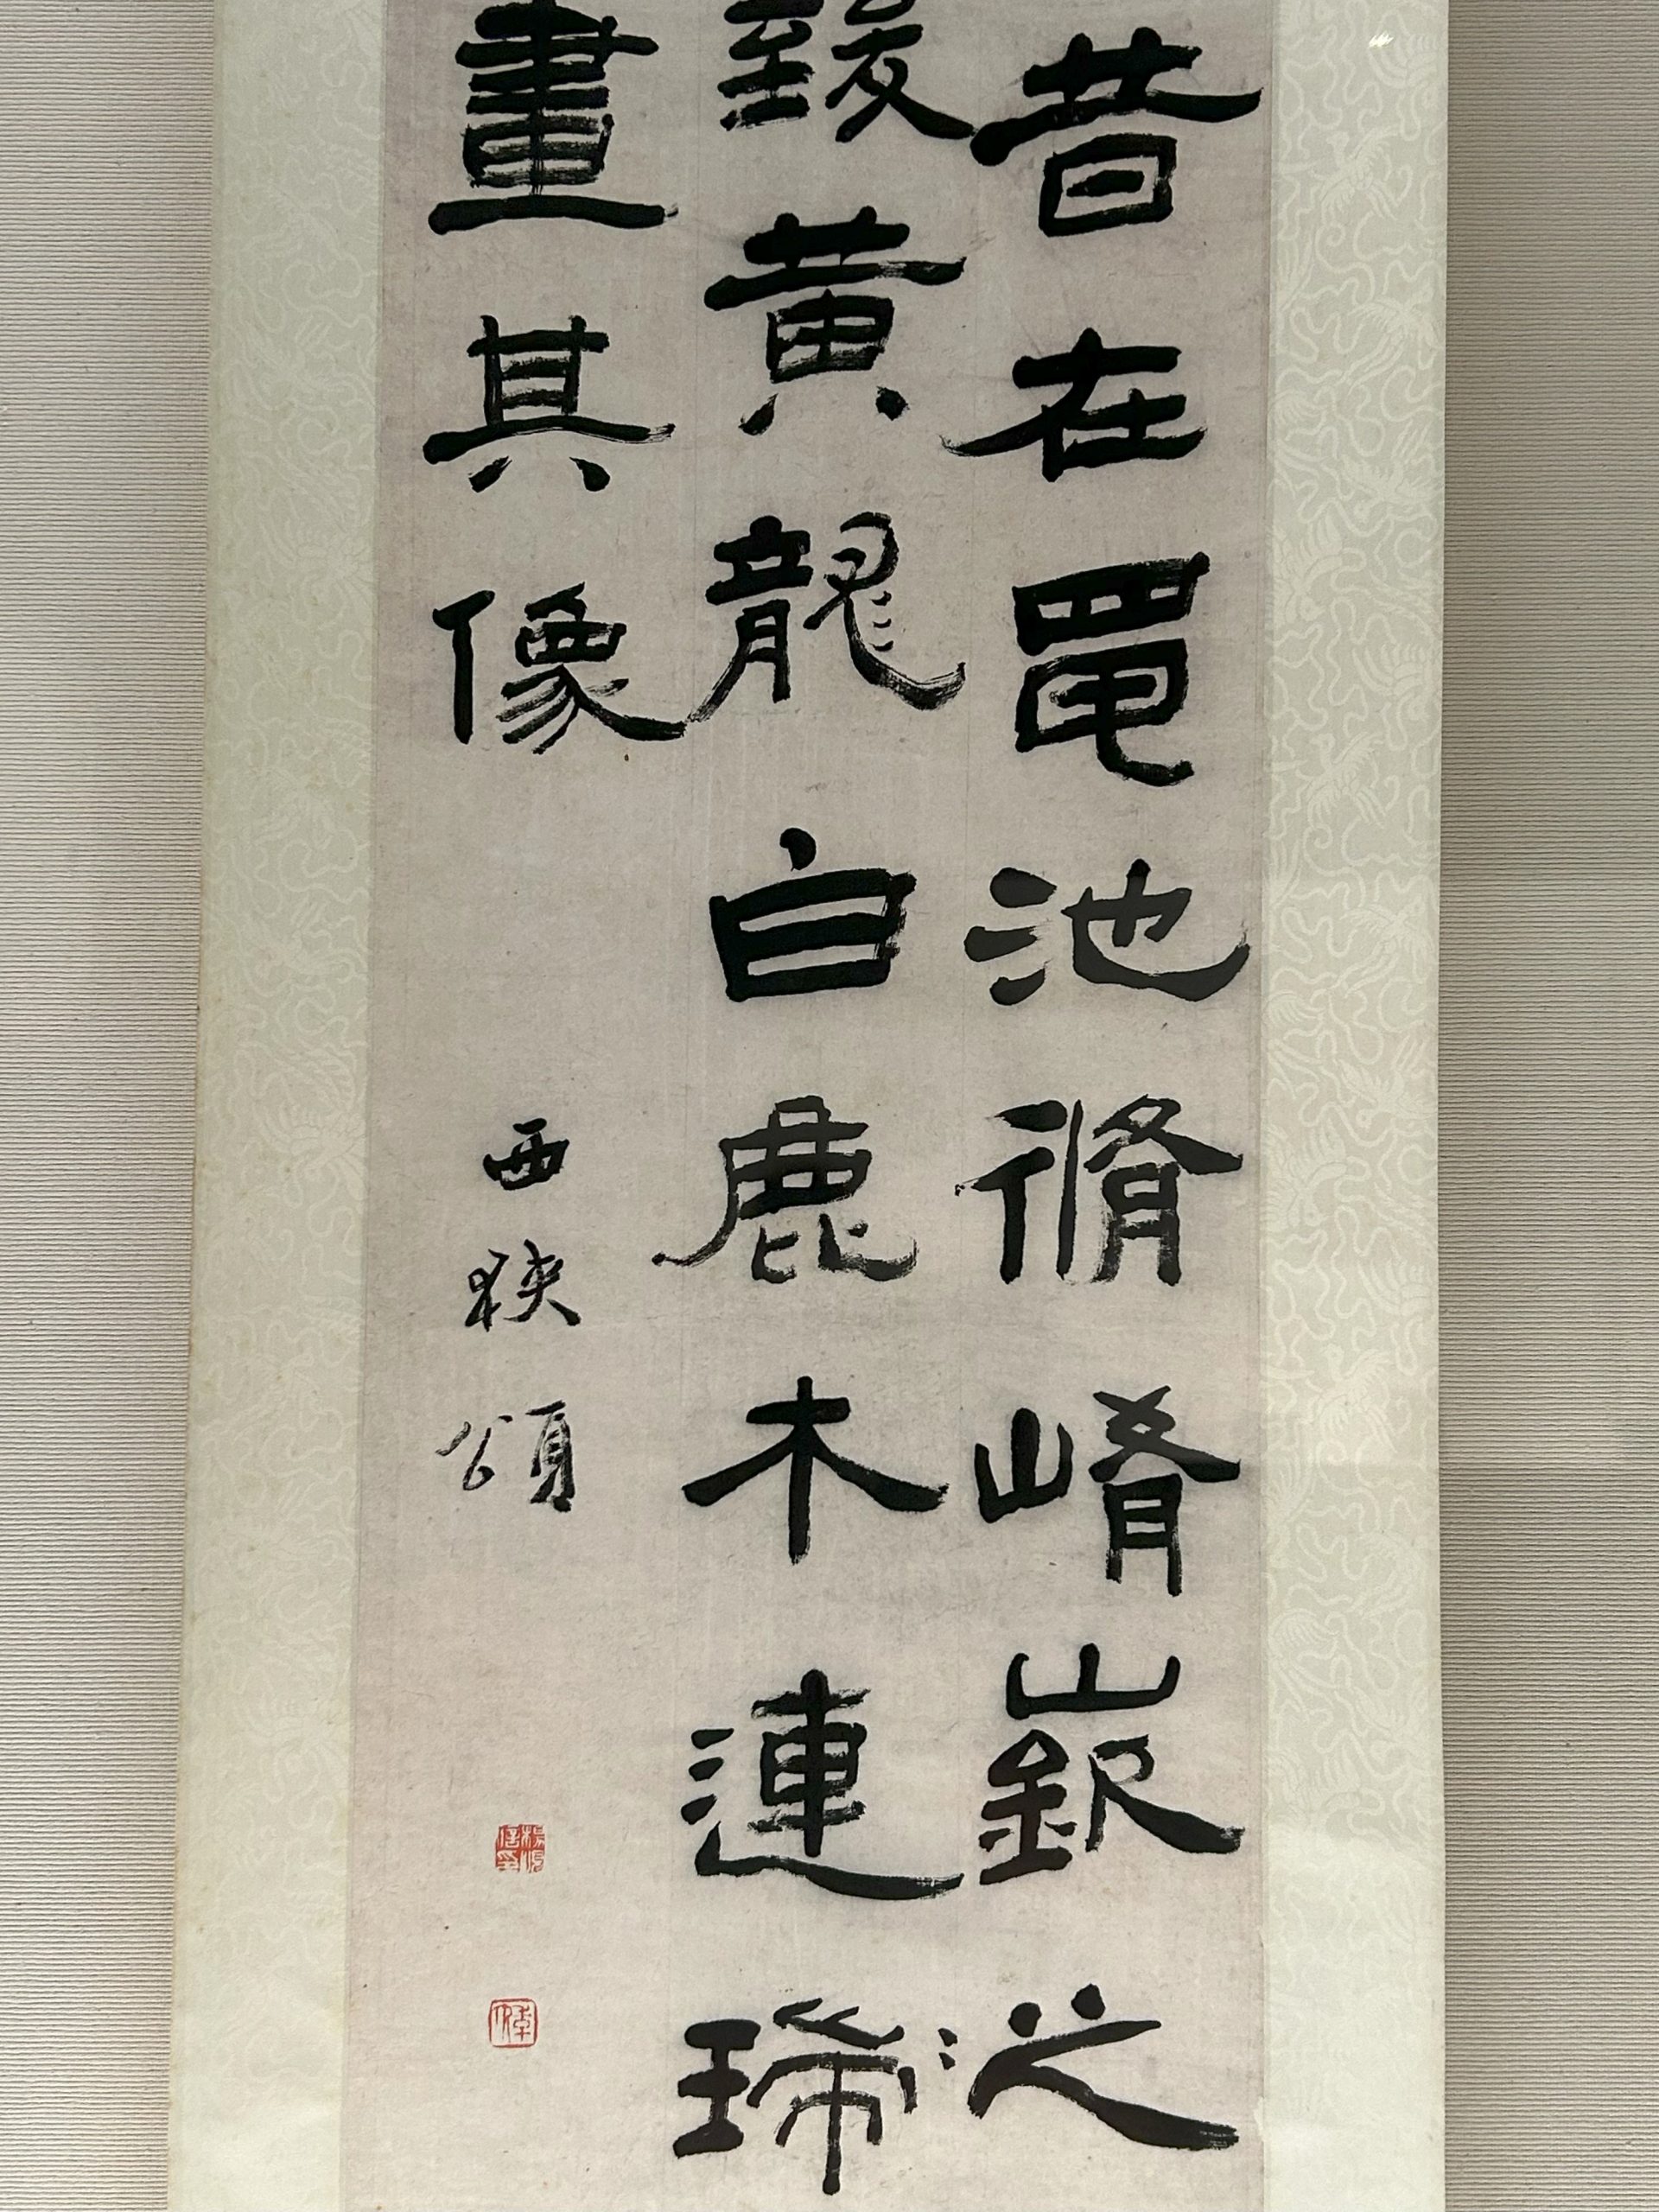 昔在黽池脩崤嶔之
致黃龍白鹿木連
畫其像
西狹頌